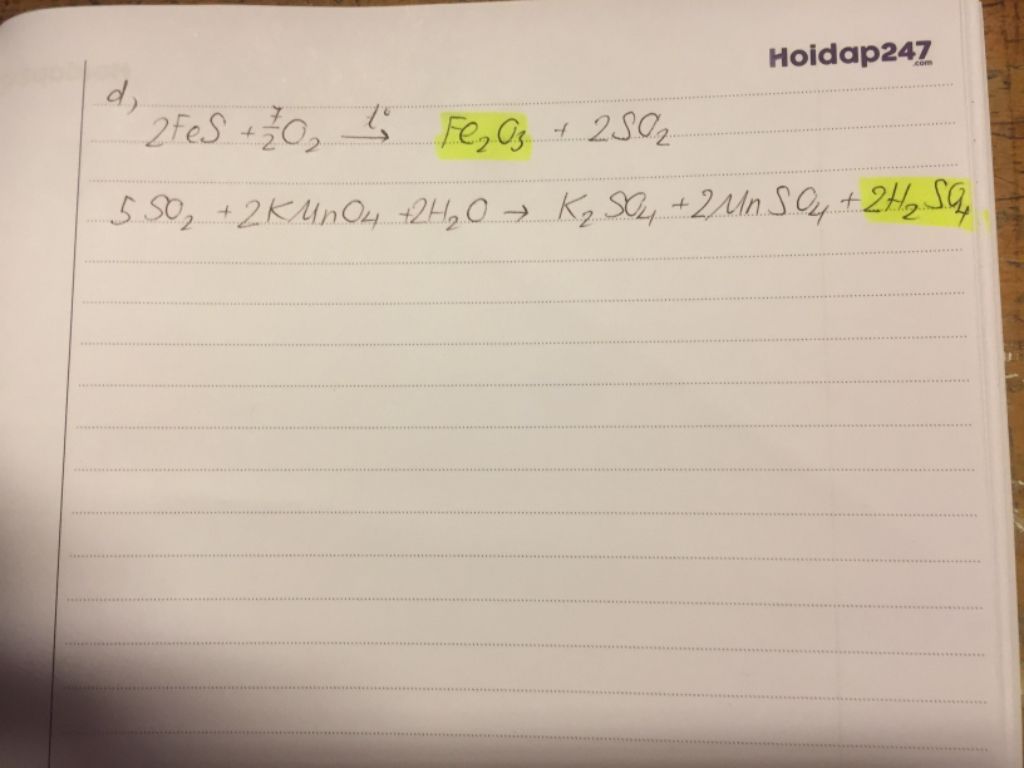 Hoidap247
.com
d,
2FeS + 7/2 O₂ —t°→ Fe₂O₃ + 2SO₂
5 SO₂ + 2KMnO₄ + 2H₂O → K₂SO₄ + 2MnSO₄ + 2H₂SO₄